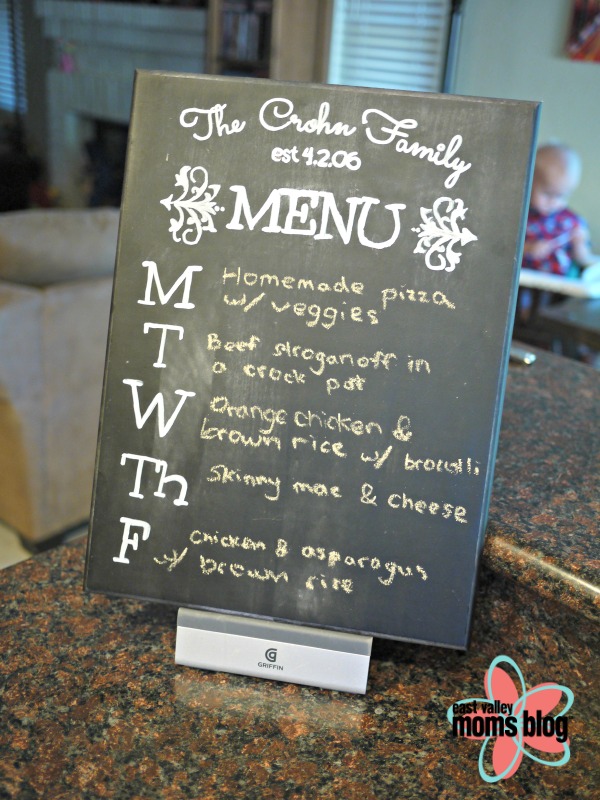 The Crohn Family
est 4.2.06
MENU
M Homemade pizza
w/ veggies
T Beef stroganoff in
a crock pot
W Orange chicken &
brown rice w/ brocolli
Th Skinny mac & cheese
F chicken & asparagus
w/ brown rice
GRIFFIN
east valley
moms blog